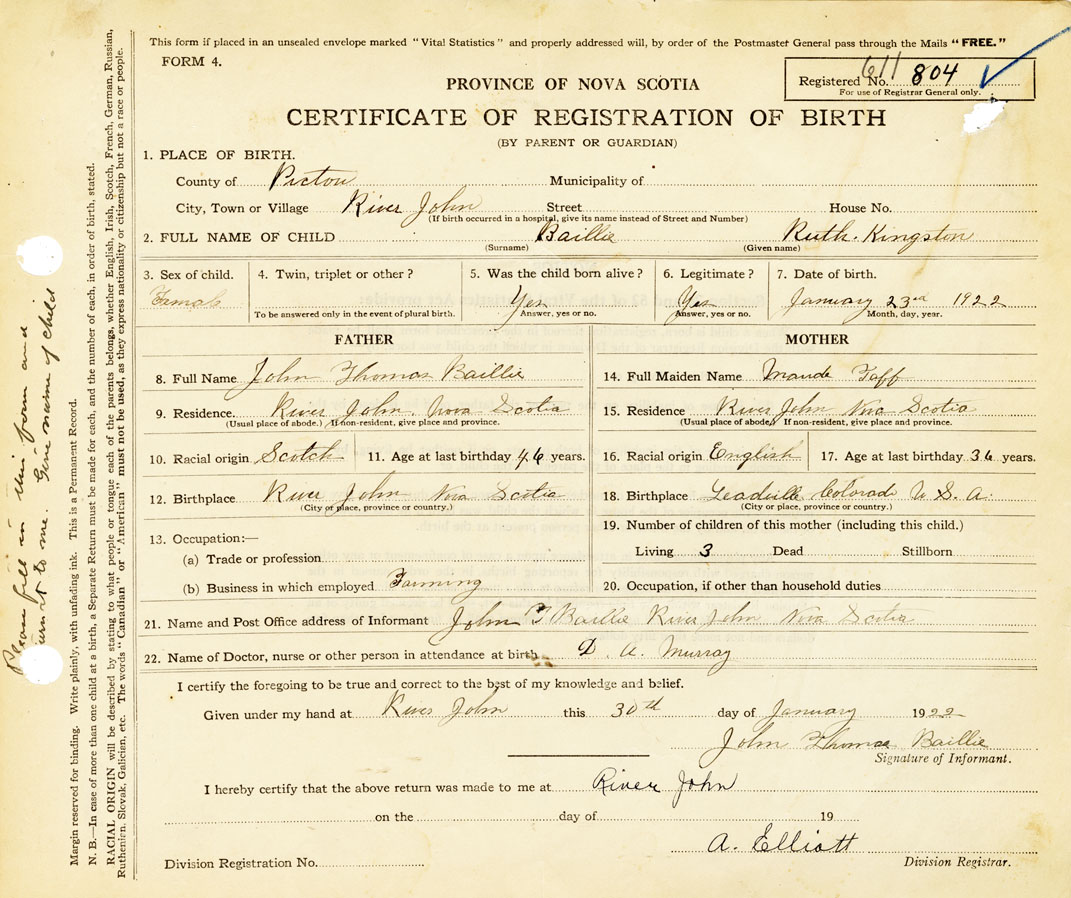 This form if placed in an unsealed envelope marked "Vital Statistics" and properly addressed will, by order of the Postmaster General pass through the Mails "FREE."
FORM 4.
611
Registered No. 804
For use of Registrar General only.
PROVINCE OF NOVA SCOTIA
CERTIFICATE OF REGISTRATION OF BIRTH
(BY PARENT OR GUARDIAN)
1. PLACE OF BIRTH.
County of Pictou Municipality of
City, Town or Village River John Street House No.
(If birth occurred in a hospital, give its name instead of Street and Number)
2. FULL NAME OF CHILD Baillie Ruth. Kingston
(Surname) (Given name)
3. Sex of child. 4. Twin, triplet or other? 5. Was the child born alive? 6. Legitimate? 7. Date of birth.
Female Yes Yes January 23rd 1922
To be answered only in the event of plural birth. Answer, yes or no. Answer, yes or no. Month, day, year.
FATHER
8. Full Name John Thomas Baillie
9. Residence. River John. Nova Scotia
(Usual place of abode.) If non-resident, give place and province.
10. Racial origin Scotch 11. Age at last birthday 46 years.
12. Birthplace River John Nova Scotia
(City or place, province or country.)
13. Occupation:—
(a) Trade or profession
(b) Business in which employed Farming
MOTHER
14. Full Maiden Name Maude Taff
15. Residence River John Nova Scotia
(Usual place of abode.) If non-resident, give place and province.
16. Racial origin English 17. Age at last birthday 36 years.
18. Birthplace Leadville Colorado U.S.A.
(City or place, province or country.)
19. Number of children of this mother (including this child.)
Living 3 Dead Stillborn
20. Occupation, if other than household duties
21. Name and Post Office address of Informant John T Baillie River John Nova Scotia
22. Name of Doctor, nurse or other person in attendance at birth D. A. Murray
I certify the foregoing to be true and correct to the best of my knowledge and belief.
Given under my hand at River John this 30th day of January 1922
John Thomas Baillie
Signature of Informant.
I hereby certify that the above return was made to me at River John
on the day of 19
A. Elliott
Division Registration No. Division Registrar.
Please fill in this form and
return it to me. Give name of child
Margin reserved for binding. Write plainly, with unfading ink. This is a Permanent Record.
N. B.—In case of more than one child at a birth, a Separate Return must be made for each, and the number of each, in order of birth, stated.
RACIAL ORIGIN will be described by stating to what people or tongue each of the parents belongs, whether English, Irish, Scotch, French, German, Russian,
Ruthenien, Slovak, Galician, etc. The words "Canadian" or "American" must not be used, as they express nationality or citizenship but not a race or people.